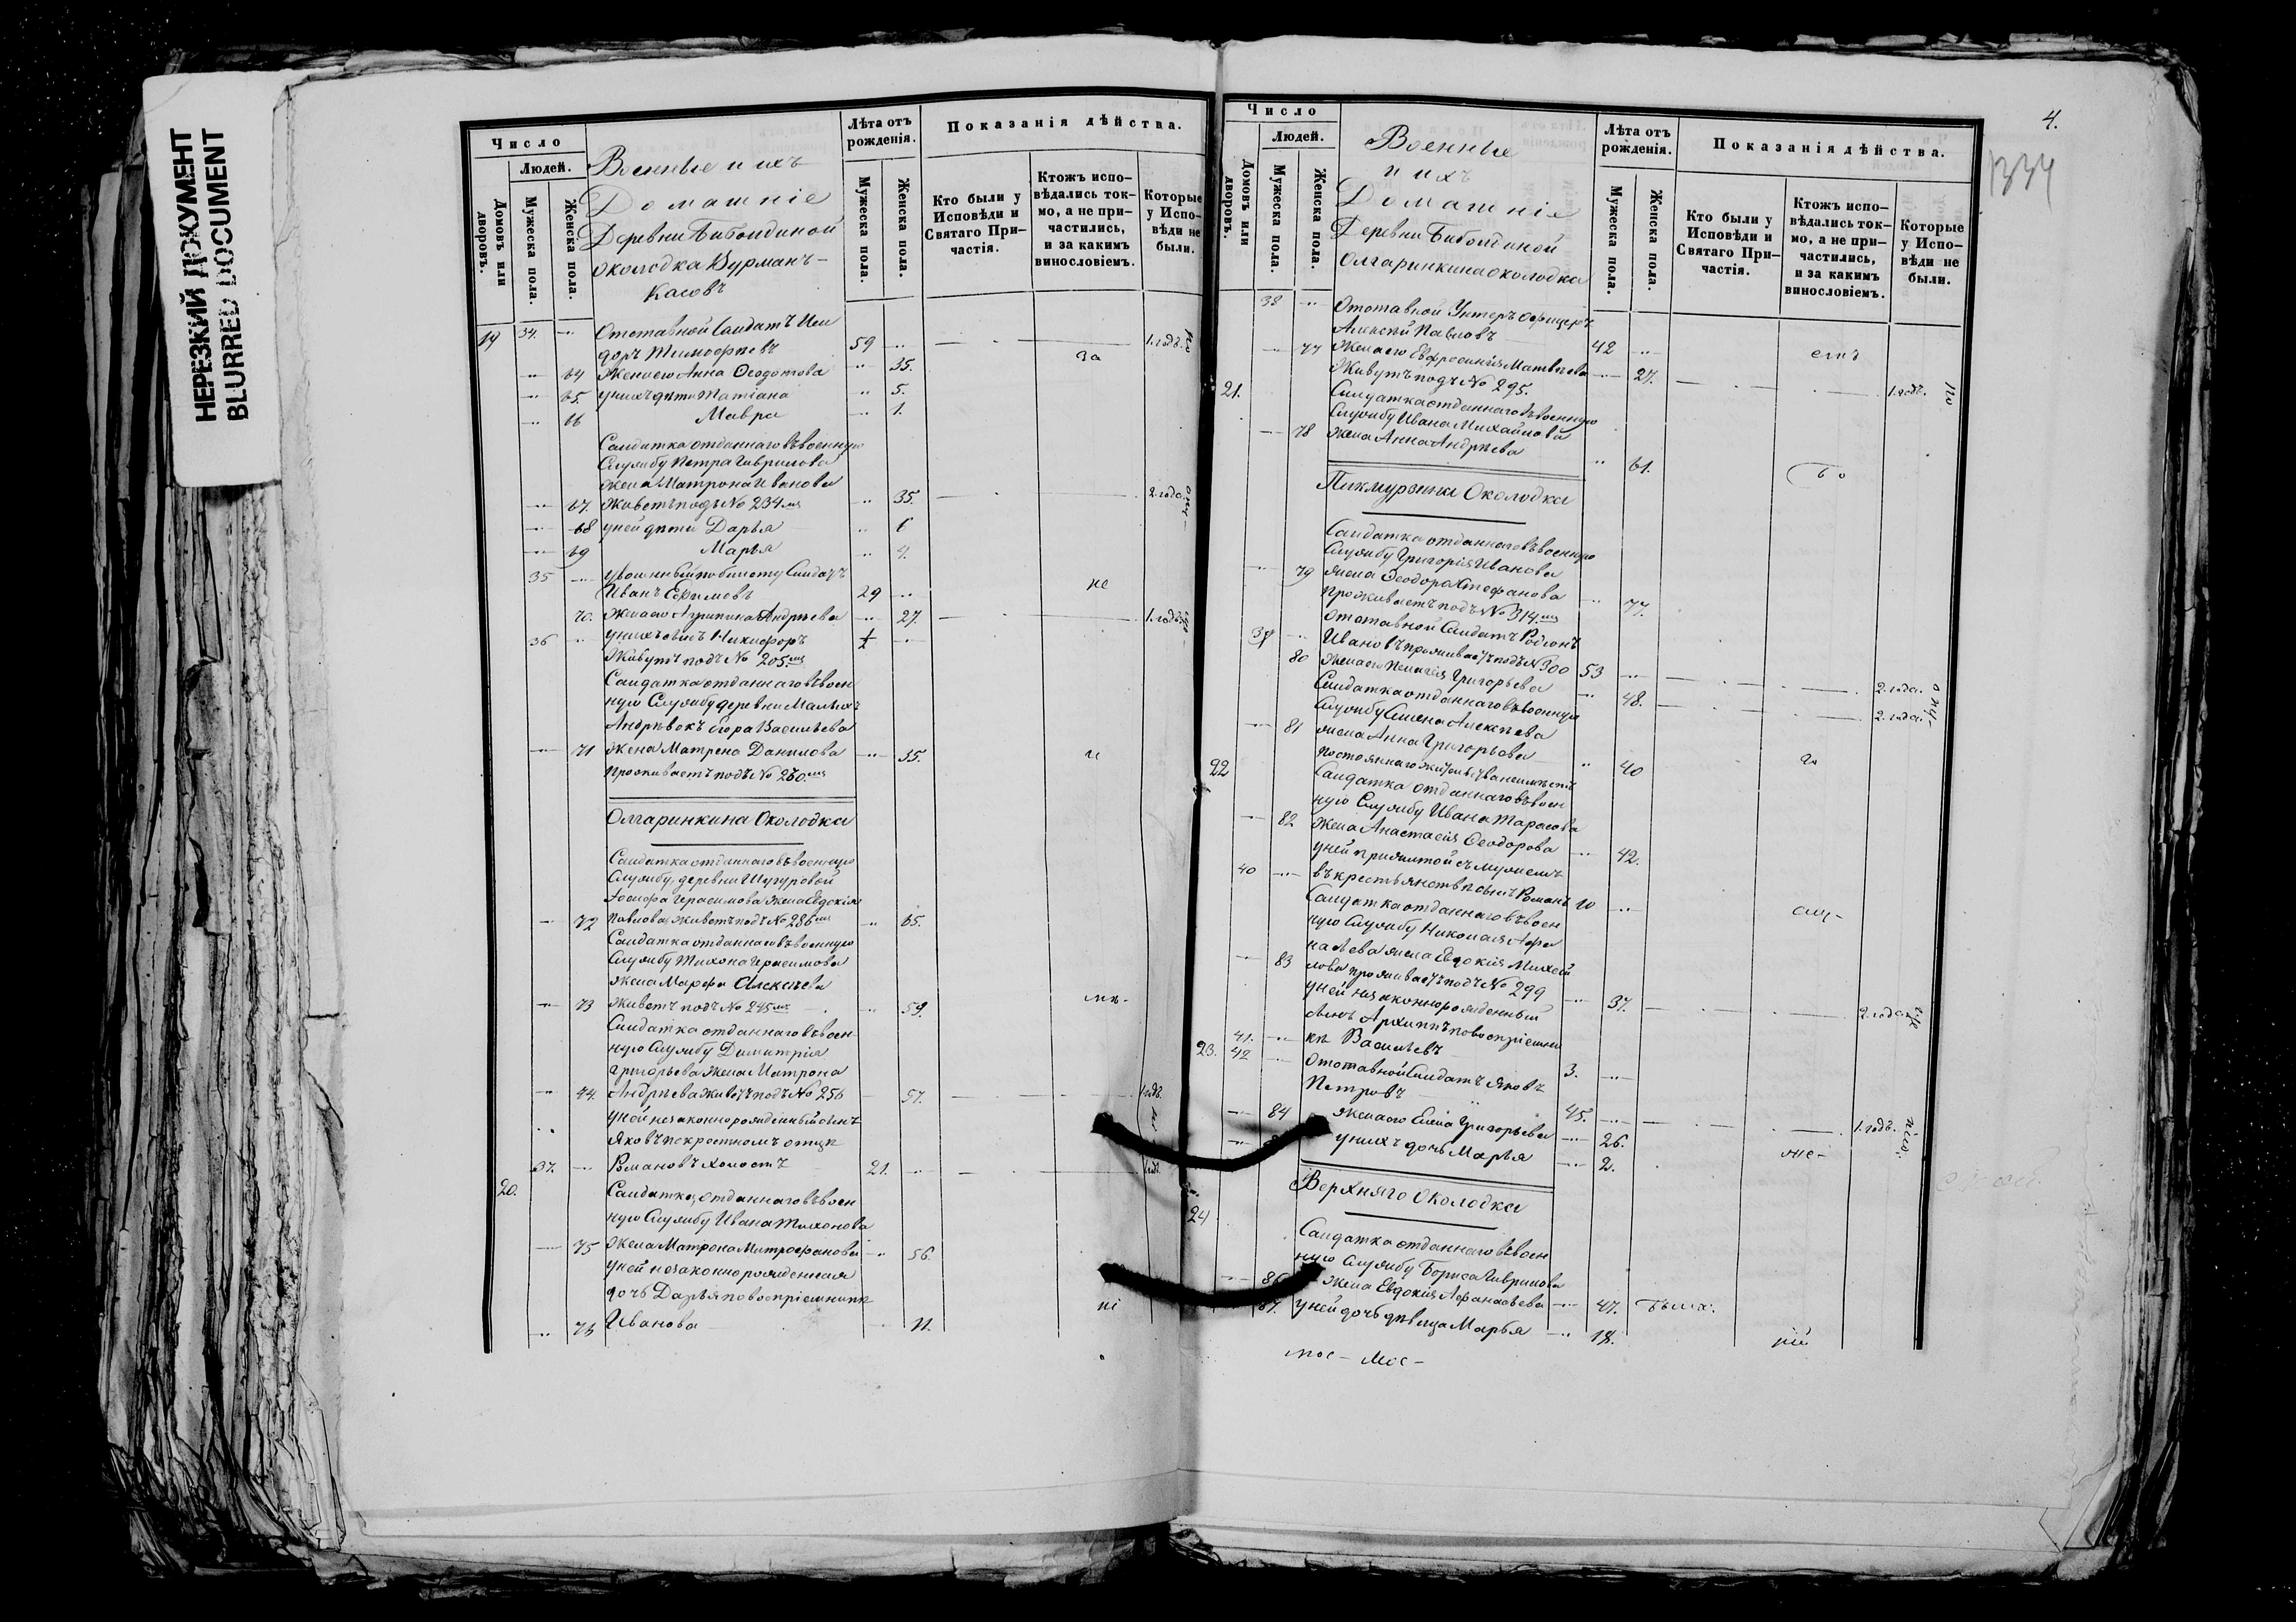 НЕРЕЗКИЙ ДОКУМЕНТ
BLURRED DOCUMENT
Число
Людей.
Домовъ или дворовъ.
Мужеска пола.
Женска пола.
Военные и ихъ
Домашніе
Деревни
околодка Вурманъ-
Касовъ
Лѣта отъ рожденія.
Мужеска пола.
Женска пола.
Показанія дѣйства.
Кто были у Исповѣди и Святаго Причастія.
Ктожъ исповѣдались токмо, а не причастились, и за какимъ винословіемъ.
Которые у Исповѣди не были.
19 34. Отставной Солдатъ Иси
доръ Тимофеевъ 59 1. годъ.
за
64 Жена его Анна Ѳеодотова 35.
65. у нихъ дѣти Татіана 5.
66 Мавра 1.
Солдатка отданнаго въ военную
Службу Петра Гаврилова
жена Матрона Иванова
67. живетъ подъ № 234мъ 35. 2. года.
68 у ней дѣти Дарья 6
69 Марья 4.
35 уволенный по билету Солдатъ
Иванъ Ефимовъ 29
не
70. Жена его Агрипина Андреева 27. 1. годъ
36 у нихъ сынъ Никифоръ
Живутъ подъ № 205.мъ
Солдатка отданнаго въ воен
ную Службу деревни Малыхъ
Андреевокъ Егора Васильева
71 жена Матрена Данилова 35.
и
проживаетъ подъ № 260.мъ
Олгаринкина Околодка
Солдатка отданнаго въ военную
Службу, деревни Шугуровой
Іосифа Герасимова жена Евдокія
72 Павлова живетъ подъ № 286мъ 65.
Солдатка отданнаго въ военную
Службу Тихона Герасимова
жена Марфа Алексеева
73 живетъ подъ № 245мъ 59.
Солдатка отданнаго въ воен-
ную Службу Димитрія
Григорьева жена Матрона
74. Андреева живетъ подъ № 256 57. 1 годъ.
у ней незаконнорожденный сынъ
Яковъ по крестномъ отцѣ
37. Романовъ холостъ 21. 1 годъ
20. Солдатка, отданнаго въ воен
ную Службу Ивана Тихонова
75 Жена Матрона Митрофанова 56.
у ней незаконнорожденная
дочь Дарья по воспріемникѣ
76 Иванова 11.
ні
4.
1334
Число
Людей.
Домовъ или дворовъ.
Мужеска пола.
Женска пола.
Военные
и ихъ
Домашніе
Деревни
Олгаринкина околодка
Лѣта отъ рожденія.
Мужеска пола.
Женска пола.
Показанія дѣйства.
Кто были у Исповѣди и Святаго Причастія.
Ктожъ исповѣдались токмо, а не причастились, и за какимъ винословіемъ.
Которые у Исповѣди не были.
38 Отставной Унтеръ офицеръ
Алексѣй Павловъ 42
77 Жена его Евфросинія Матвѣева 27. 1. годъ. по
Живутъ подъ № 295.
21. Солдатка отданнаго въ военную
Службу Ивана Михайлова
78 жена Анна Андреева 61.
Пикмурзина Околодка
Солдатка отданнаго въ военную
Службу Григорія Иванова
79 жена Ѳеодора Стефанова 77.
проживаетъ подъ № 314.мъ
39 отставной Солдатъ Родіонъ
Ивановъ проживаетъ подъ № 300 53 2. года.
80 Жена его Пелагія Григорьева 48. 2. года.
Солдатка отданнаго въ военную
Службу Симена Алексеева
81 жена Анна Григорьева 40
22 Солдатка отданнаго въ воен
ную Службу Ивана Тарасова
82 Жена Анастасія Ѳеодорова 42.
у ней прижитой съ мужемъ
40 въ крестьянствѣ сынъ Романъ 10
Солдатка отданнаго въ воен
ную Службу Николая Афа
насьева жена Евдокія Михай
83 лова проживаетъ подъ № 299 37. 2. года
у ней незаконнорожденный
сынъ Архиппъ по воспріемни
41. кѣ Васильевъ 3.
23. 42 Отставной Солдатъ Яковъ
Петровъ 45. 1. годъ.
84 Жена его Елена Григорьева 26.
у нихъ дочь Марья 2.
Верхняго Околодка
24 Солдатка отданнаго въ воен
ную Службу Бориса Гаврилова
86 жена Евдокія Афанасьева 47. была.
87. у ней дочь дѣвица Марья 18.